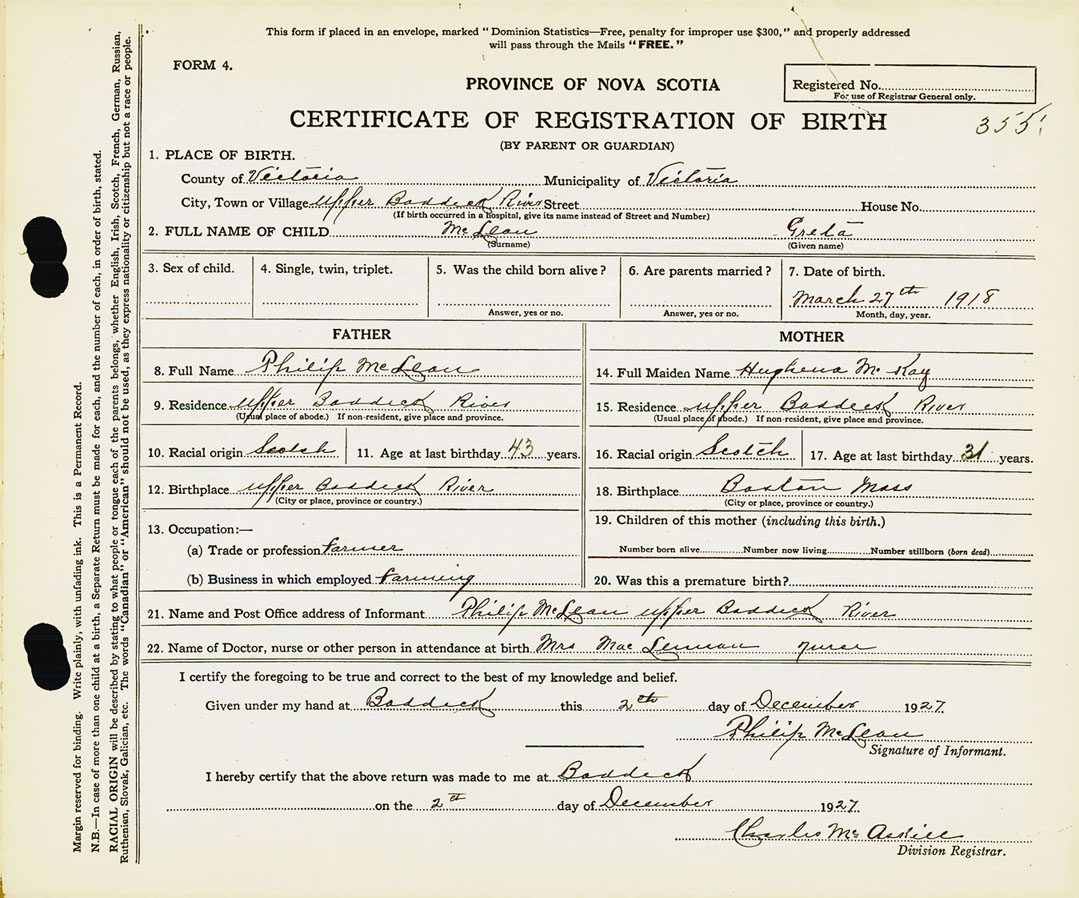 This form if placed in an envelope, marked "Dominion Statistics—Free, penalty for improper use $300," and properly addressed
will pass through the Mails "FREE."
FORM 4.
PROVINCE OF NOVA SCOTIA
Registered No.
For use of Registrar General only.
CERTIFICATE OF REGISTRATION OF BIRTH
355
(BY PARENT OR GUARDIAN)
1. PLACE OF BIRTH.
County of Victoria Municipality of Victoria
City, Town or Village Upper Baddeck River Street House No.
(If birth occurred in a hospital, give its name instead of Street and Number)
2. FULL NAME OF CHILD McLean Greta
(Surname) (Given name)
3. Sex of child. 4. Single, twin, triplet. 5. Was the child born alive? 6. Are parents married? 7. Date of birth.
March 27th 1918
Answer, yes or no. Answer, yes or no. Month, day, year.
FATHER
8. Full Name Philip McLean
9. Residence Upper Baddeck River
(Usual place of abode.) If non-resident, give place and province.
10. Racial origin Scotch 11. Age at last birthday 43 years.
12. Birthplace Upper Baddeck River
(City or place, province or country.)
13. Occupation:—
(a) Trade or profession Farmer
(b) Business in which employed Farming
MOTHER
14. Full Maiden Name Hughena McKay
15. Residence Upper Baddeck River
(Usual place of abode.) If non-resident, give place and province.
16. Racial origin Scotch 17. Age at last birthday 31 years.
18. Birthplace Boston Mass
(City or place, province or country.)
19. Children of this mother (including this birth.)
Number born alive Number now living Number stillborn (born dead)
20. Was this a premature birth?
21. Name and Post Office address of Informant Philip McLean Upper Baddeck River
22. Name of Doctor, nurse or other person in attendance at birth. Mrs MacLennan nurse
I certify the foregoing to be true and correct to the best of my knowledge and belief.
Given under my hand at Baddeck this 2th day of December 1927
Philip McLean
Signature of Informant.
I hereby certify that the above return was made to me at Baddeck
on the 2th day of December 1927
Charles McAskill
Division Registrar.
Margin reserved for binding. Write plainly, with unfading ink. This is a Permanent Record.
N.B.—In case of more than one child at a birth, a Separate Return must be made for each, and the number of each, in order of birth, stated.
RACIAL ORIGIN will be described by stating to what people or tongue each of the parents belongs, whether English, Irish, Scotch, French, German, Russian,
Ruthenian, Slovak, Galician, etc. The words "Canadian" or "American" should not be used, as they express nationality or citizenship but not a race or people.